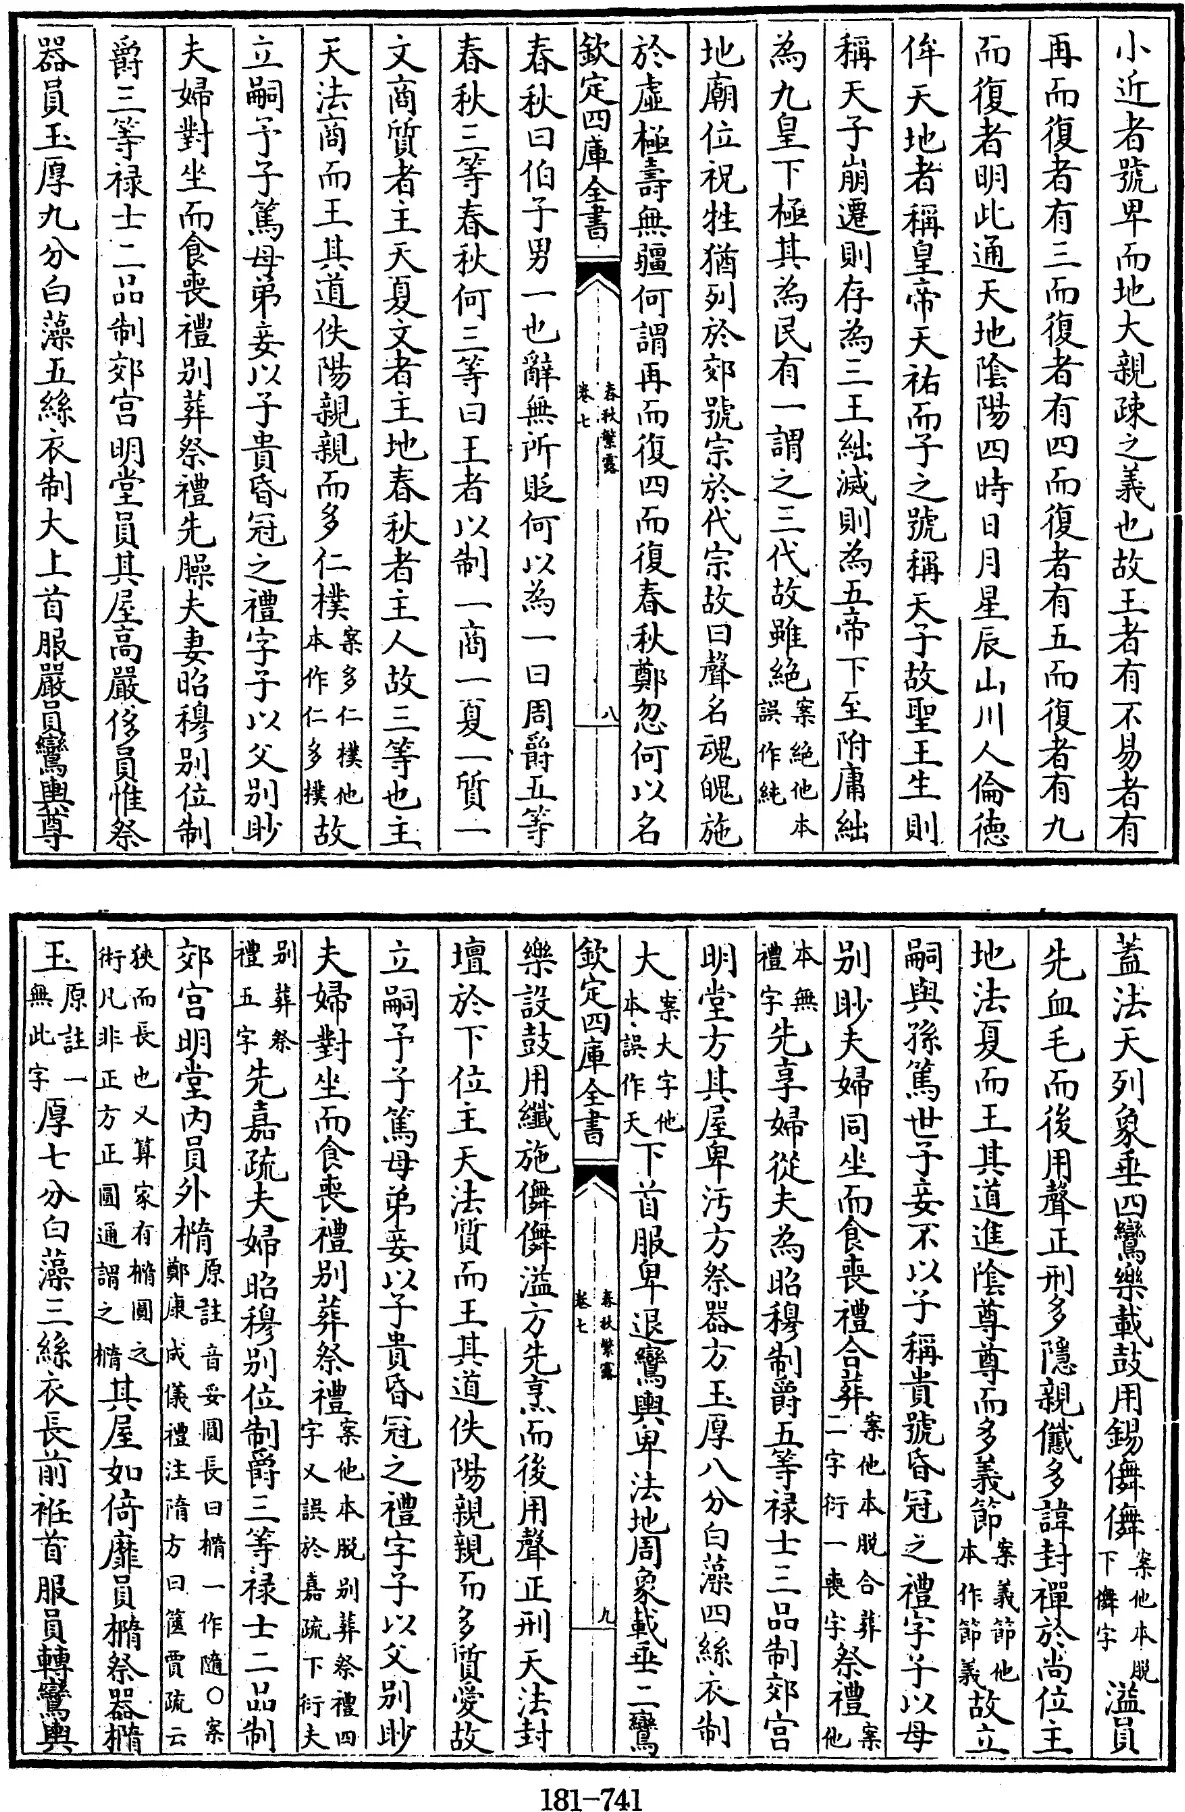 小近者號卑而地大親疎之義也故王者有不易者有
再而復者有三而復者有四而復者有五而復者有九
而復者明此通天地陰陽四時日月星辰山川人倫德
侔天地者稱皇帝天祐而子之號稱天子故聖王生則
稱天子崩遷則存為三王絀滅則為五帝下至附庸絀
為九皇下極其為民有一謂之三代故雖絶案絶他本誤作純
地廟位祝牲猶列於郊號宗於代宗故曰聲名魂魄施
於虛極壽無疆何謂再而復四而復春秋鄭忽何以名
欽定四庫全書
春秋繁露
卷七
八
春秋曰伯子男一也辭無所貶何以為一曰周爵五等
春秋三等春秋何三等曰王者以制一商一夏一質一
文商質者主天夏文者主地春秋者主人故三等也主
天法商而王其道佚陽親親而多仁樸案多仁樸他本作仁多樸故
立嗣予子篤母弟妾以子貴昏冠之禮字子以父别眇
夫婦對坐而食喪禮别葬祭禮先臊夫妻昭穆别位制
爵三等禄士二品制郊宫明堂員其屋高嚴侈員惟祭
器員玉厚九分白藻五絲衣制大上首服嚴員鸞輿尊
蓋法天列象垂四鸞樂載鼓用錫儛儛案他本脱下儛字溢員
先血毛而後用聲正刑多隱親戱多諱封禪於尚位主
地法夏而王其道進陰尊尊而多義節案義節他本作節義故立
嗣與孫篤世子妾不以子稱貴號昏冠之禮字子以母
别眇夫婦同坐而食喪禮合葬案他本脱合葬二字衍一喪字祭禮案他
本無禮字先享婦從夫為昭穆制爵五等禄士三品制郊宫
明堂方其屋卑汚方祭器方玉厚八分白藻四絲衣制
大案大字他本誤作天下首服卑退鸞輿卑法地周象載垂二鸞
欽定四庫全書
春秋繁露
卷七
九
樂設鼓用纎施儛儛溢方先烹而後用聲正刑天法封
壇於下位主天法質而王其道佚陽親親而多質愛故
立嗣予子篤母弟妾以子貴昏冠之禮字子以父别眇
夫婦對坐而食喪禮别葬祭禮案他本脱别葬祭禮四字又誤於嘉疏下衍夫
别葬祭禮五字先嘉疏夫婦昭穆别位制爵三等禄士二品制
郊宫明堂内員外橢原註音妥圜長曰橢一作隨○案鄭康成儀禮注隋方曰篋賈疏云
狹而長也又算家有橢圜之術凡非正方正圓通謂之橢其屋如倚靡員橢祭器橢
玉原註一無此字厚七分白藻三絲衣長前衽首服員轉鸞輿
181-741